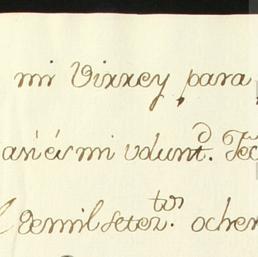 mi Virrey para
asi és mi volunt.d Fec
l de mil setez.tos ochen